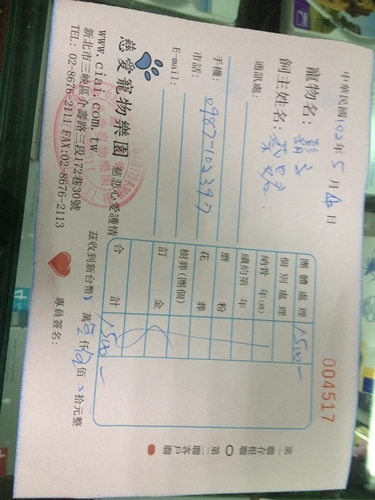 慈愛寵物樂園 慈悲心愛護情
www.ciai.com.tw
新北市三峽區介壽路三段172巷30號
TEL: 02-8676-2111 FAX:02-8676-2113
中華民國102年5月4日
寵物名:
飼主姓名:
通訊處:
手機: 0987-102397
市話:
E-mail:
004517
團體處理 1500-
個別處理
納骨 年(跨)
續約第 年
磨粉
花葬
樹葬(團個)
訂金
合計 1500-
茲收到新台幣: 萬壹仟伍佰 拾元整
專員簽名:
第一聯存根聯
第二聯客戶聯